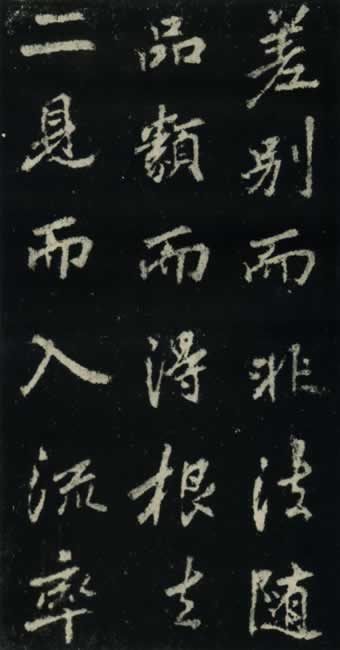 差別而非法随
品類而得根去
二見而入流率